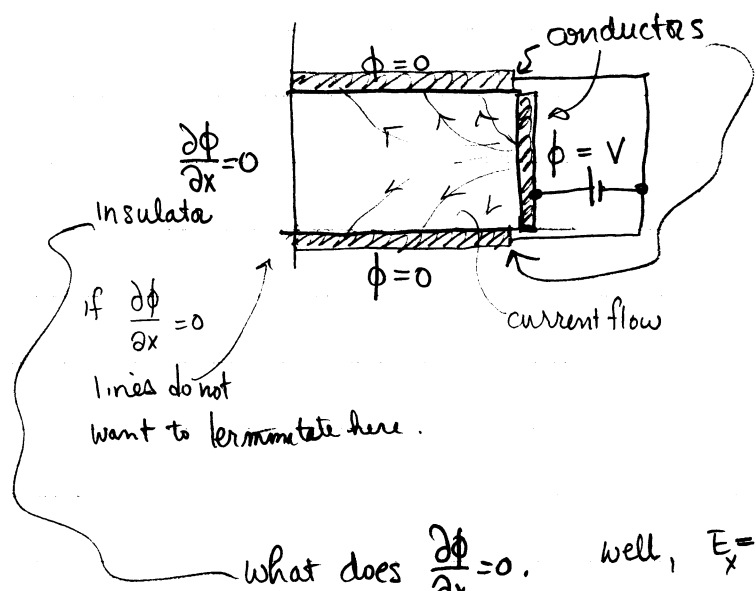 conductors
ϕ = 0
∂ϕ/∂x = 0
ϕ = V
Insulata
ϕ = 0
if ∂ϕ/∂x = 0
current flow
lines do not
want to termmitate here.
what does ∂ϕ/∂x = 0. well, E_x =